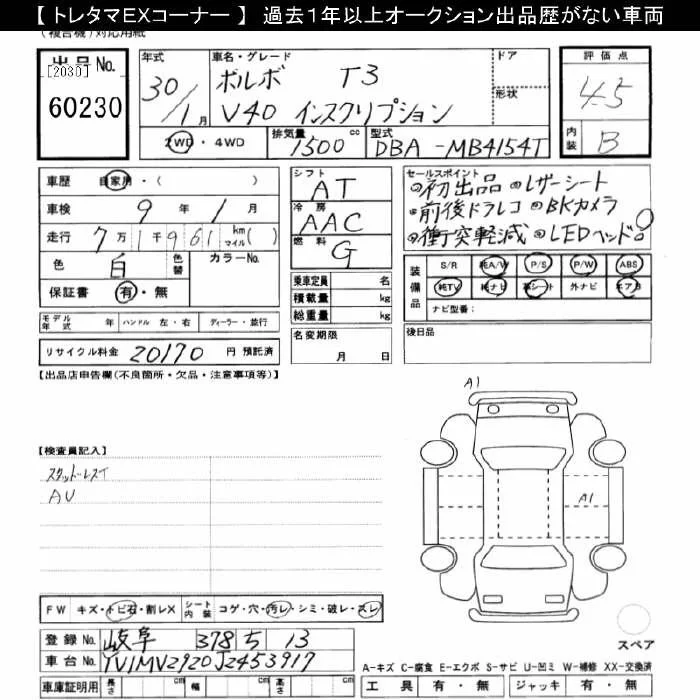 【 トレタマEXコーナー 】 過去1年以上オークション出品歴がない車両
(複合機)対応用紙
出品No.
[2030]
60230
年式
30/1月
車名・グレード
ボルボ T3
V40 インスクリプション
ドア
形状
2WD・4WD
排気量
1500 cc
型式
DBA-MB4154T
評価点
4.5
内装
B
車歴 自家用・( )
車検 9年1月
走行 7万1千961 kmマイル( )
色 白 色替 カラーNo.
保証書 有・無
シフト
AT
冷房
AAC
燃料
G
乗車定員 名
積載量 kg
総重量 kg
セールスポイント
初出品 レザーシート
前後ドラレコ BKカメラ
衝突軽減 LEDヘッド
装備品
S/R 純A/W P/S P/W ABS
純TV 純ナビ 革シート 外ナビ エアB
ナビ型番:
モデル年式 年 ハンドル 左・右 ディーラー・並行
リサイクル料金 20170 円 預託済
名変期限
月 日
後日品
【出品店申告欄(不良箇所・欠品・注意事項等)】
【検査員記入】
スタッドレスT
AU
A1
A1
FW キズ・トビ石・割レX シート内装 コゲ・穴・汚レ・シミ・破レ・スレ
登録No. 岐阜 378 ち 13
車台No. YV1MV2920J2453917
車庫証明用 長さ cm 幅 cm 高さ cm
スペア
A-キズ C-腐食 E-エクボ S-サビ U-凹ミ W-補修 XX-交換済
工具 有・無 ジャッキ 有・無